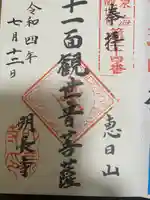 奉拝
恵日山
十一面観世音菩薩
明長寺
令和四年
七月十二日